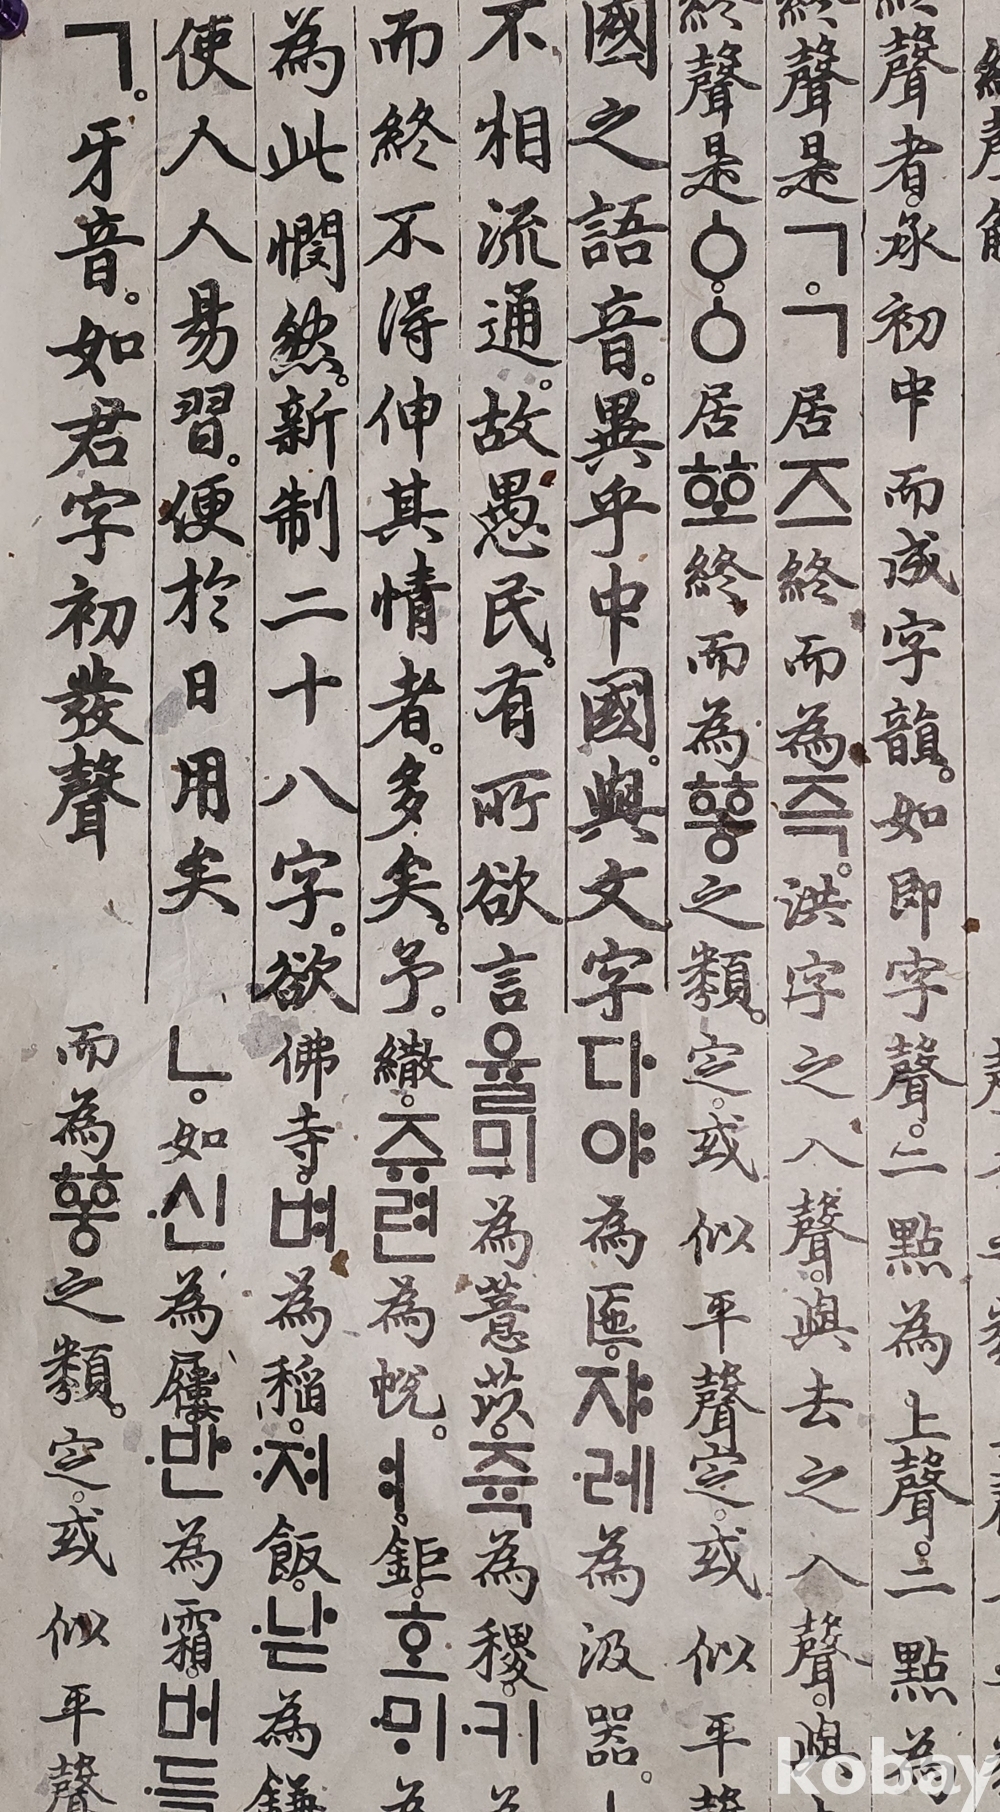 終聲者。承初中而成字韻。如即字聲。二點為上聲。二點為
終聲是ㄱ。ㄱ居즈終而為즉。洪字之入聲。與去之入聲。與
終聲是ㆁ。ㆁ居ᅘᅩ終而為ᅘᅩᇰ之類。定。或似平聲定。或似平聲
國之語音。異乎中國。與文字다야為匜。쟈레為汲器。
不相流通。故愚民。有所欲言율믜為薏苡。쥭為稷。키為
而終不得伸其情者。多矣。予。繖。쥬련為帨。ㅕ。鉅。호미為
為此憫然。新制二十八字。欲佛寺。벼為稲。져飯。낟為鎌
使人人易習。便於日用矣ㄴ。如신為屨반為霜。버들
ㄱ。牙音。如君字初發聲而為ᅘᅩᇰ之類。定。或似平聲
kobay